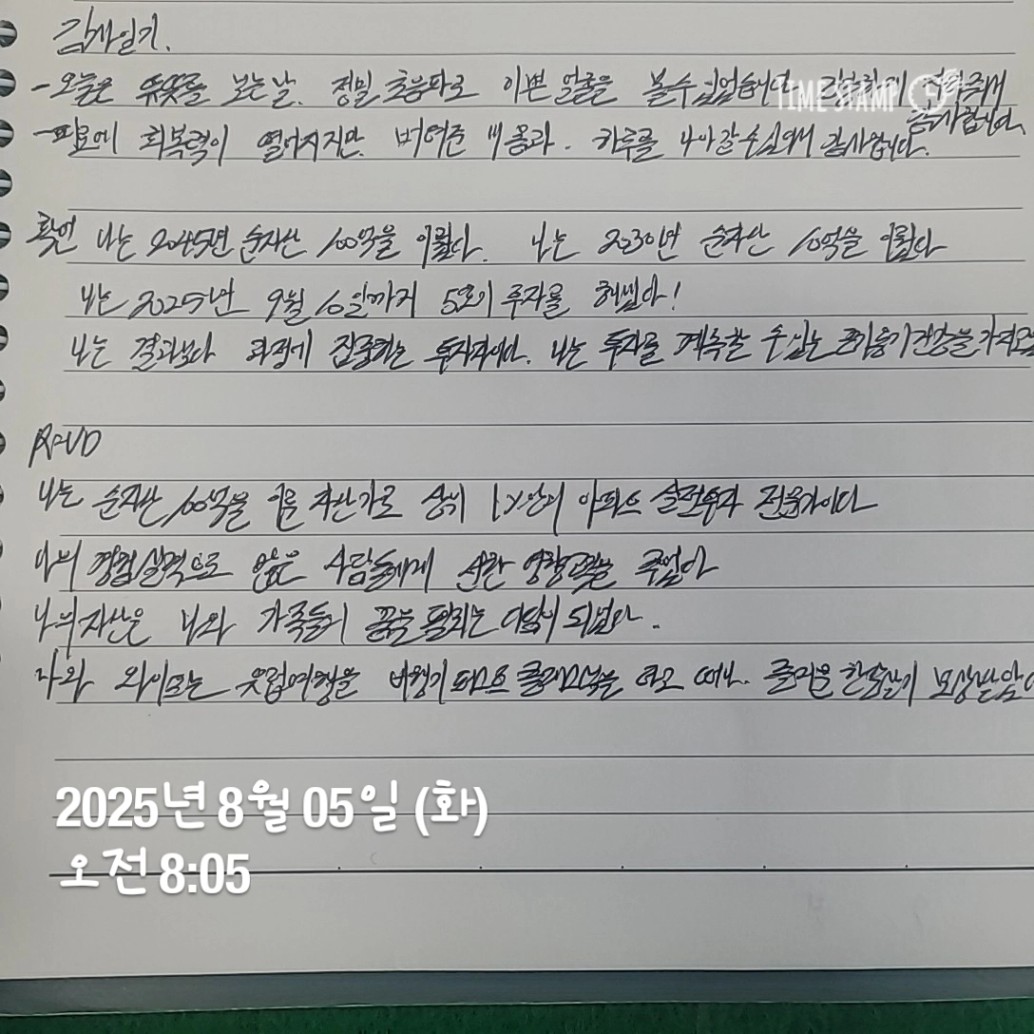 감사일기.
- 오늘은 보는날. 정밀 초음파로 이쁜 얼굴을 볼수있었습니다
감사합니다.
- 피로에 회복력이 떨어지지만 버텨준 내 몸과. 하루를 나아갈 수 있어서 감사합니다.
확언 나는 2045년 순자산 100억을 이뤘다. 나는 2030년 순자산 10억을 이뤘다
나는 2025년 9월 10일까지 5호기 투자를 했다!
나는 결과보다 과정에 집중하는 투자자이다. 나는 투자를 계속할 수 있는
R=VD
나는 순자산 100억을 이룬 자산가로 상위 1% 안의 실전투자 전문가이다
나의 경험 실력으로 많은 사람들에게 선한 영향력을 주었다
나의 자산은 나와 가족들이 꿈을 펼치는
나와 와이프는 유럽여행을 비행기 퍼스트 클래스를 타고 떠나. 즐거운
TIME STAMP
2025년 8월 05일 (화)
오전 8:05